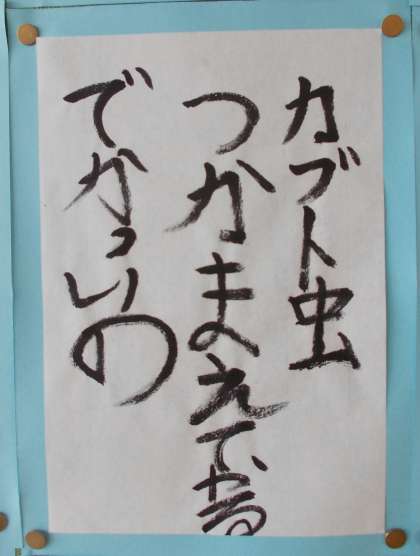 カブト虫
つかまえてかる
でかっいの